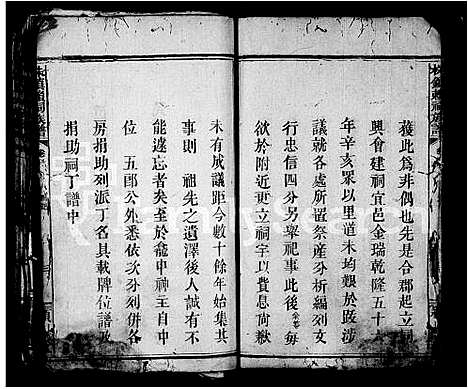 獲此爲非偶也先是合郡起立
興會建祠宜邑金瑞乾隆五十
年辛亥眾以里道未均艱於跋涉
議就各處所置祭產分析編列文
行忠信四分另舉祀事此後
欲於附近更立祠宇以為尚猷
未有成議距今數十餘年始集其
事則 祖先之遺澤後人誠有不
能遽忘者矣至於龕中神主自中
位 五郎公外悉依次分列併各
房捐助列派丁名具載牌位譜及
捐助祠丁譜中